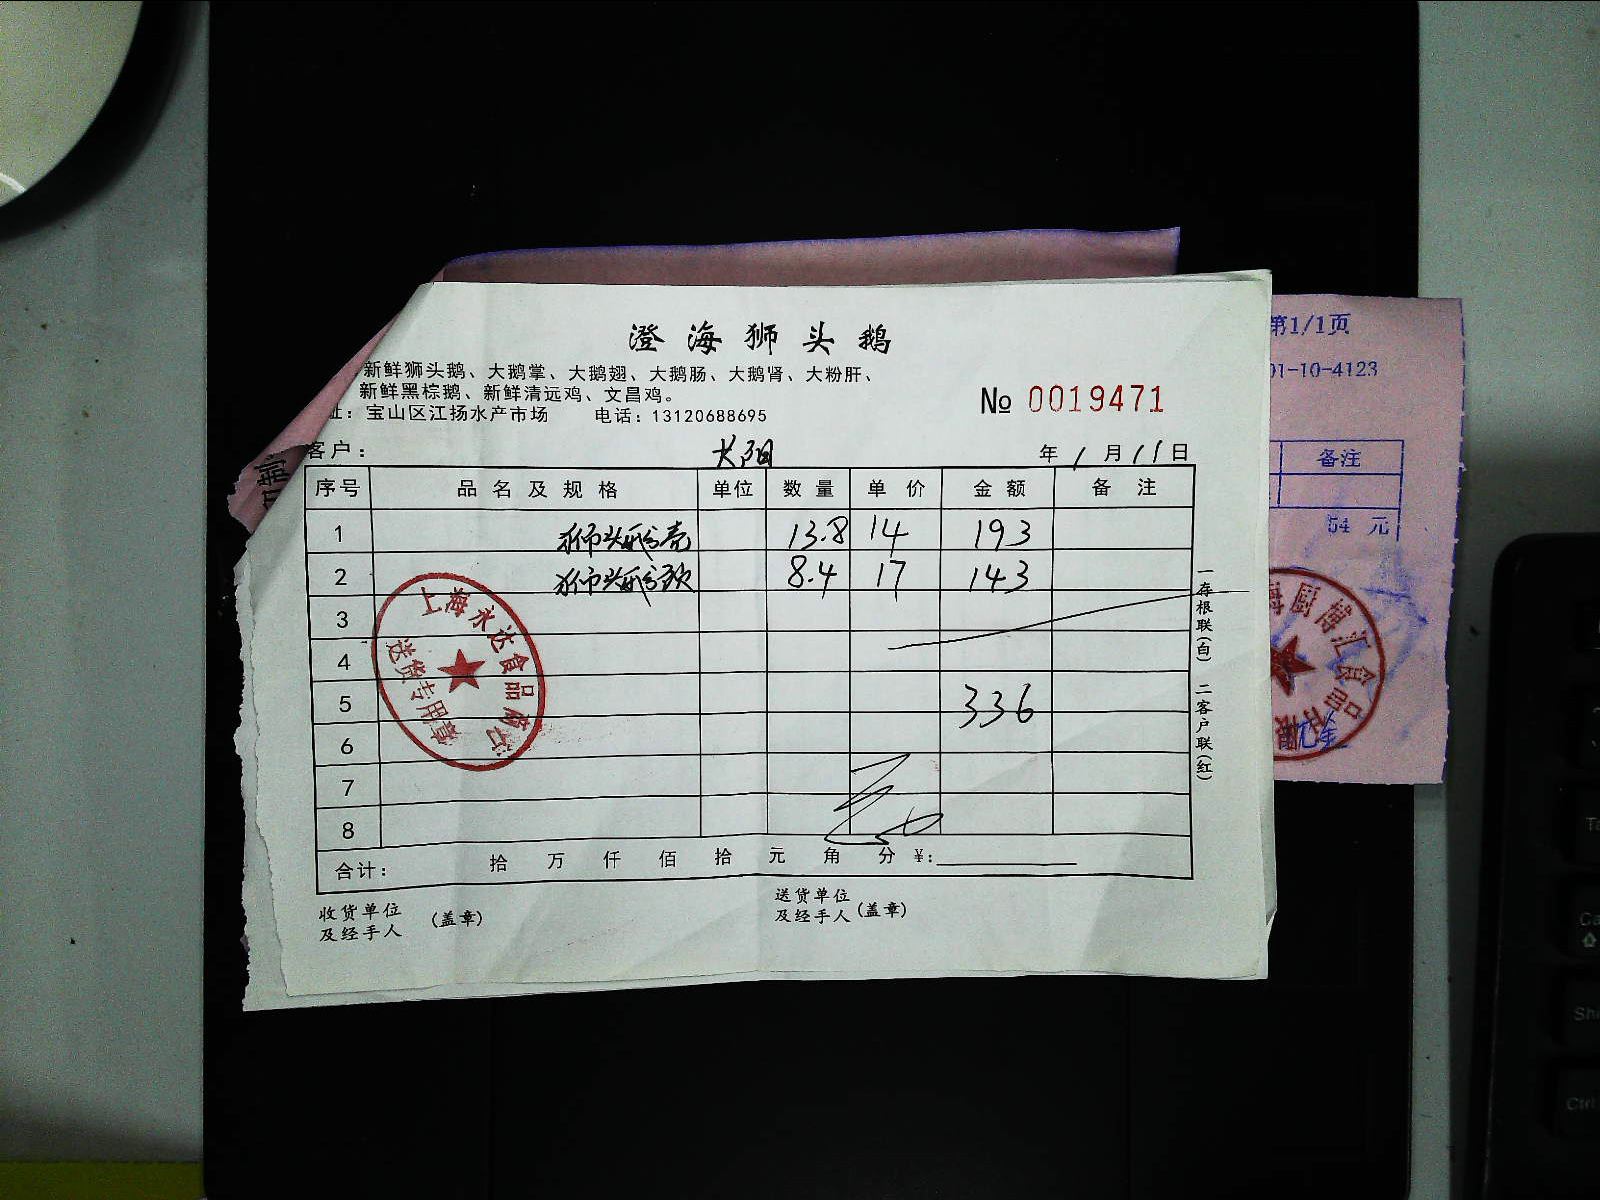 澄海狮头鹅
新鲜狮头鹅、大鹅掌、大鹅翅、大鹅肠、大鹅肾、大粉肝、
新鲜黑棕鹅、新鲜清远鸡、文昌鸡。
址：宝山区江扬水产市场 电话：13120688695
№ 0019471
客户： 年 1 月 11 日
序号 品名及规格 单位 数量 单价 金额 备注
1 狮头 13.8 14 193
2 狮头 8.4 17 143
3
4
5 336
6
7
8
合计： 拾 万 仟 佰 拾 元 角 分 ¥:
收货单位
及经手人 (盖章)
送货单位
及经手人 (盖章)
一存根联(白) 二客户联(红)
上海永达食品
送货专用章
第1/1页
01-10-4123
备注
54 元
海厨博汇食品